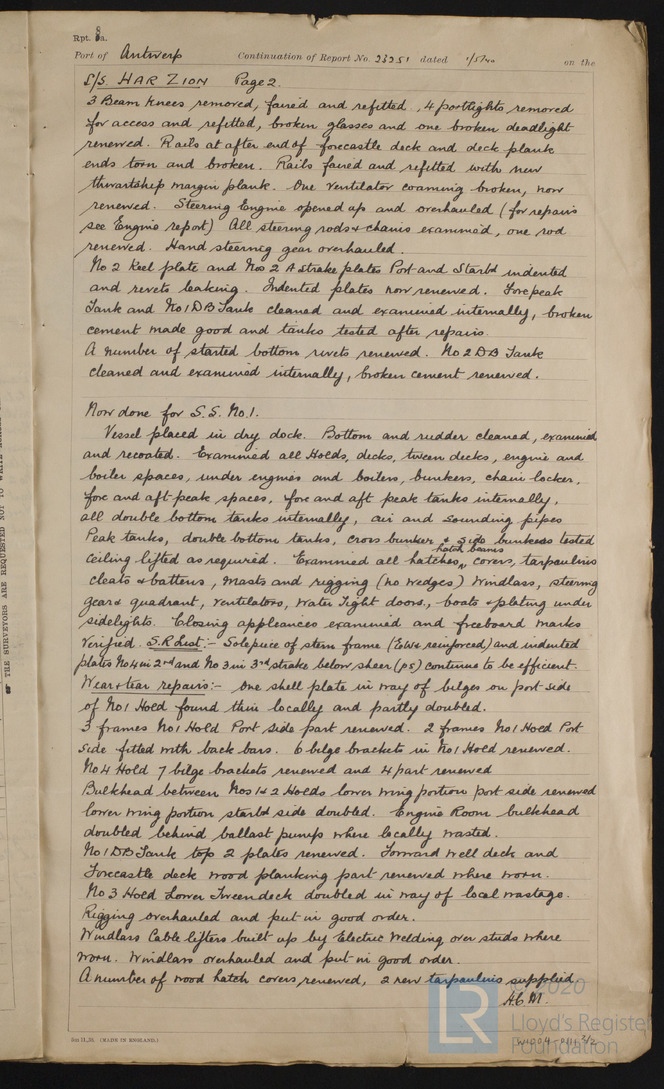 Rpt. 8a.
Port of Antwerp Continuation of Report No. 23251 dated 1/5/40 on the
S/S. HAR ZION Page 2.
3 Beam knees removed, faired and refitted, 4 portlights removed
for access and refitted, broken glasses and one broken deadlight
renewed. Rails at after end of forecastle deck and deck plank
ends torn and broken. Rails faired and refitted with new
thwartship margin plank. One ventilator coaming broken, now
renewed. Steering Engine opened up and overhauled (for repairs
see Engine report) All steering rods & chains examined, one rod
renewed. Hand steering gear overhauled.
No 2 Keel plate and Nos 2 A strake plates Port and Starbd indented
and rivets leaking. Indented plates now renewed. Forepeak
Tank and No 1 DB Tank cleaned and examined internally, broken
cement made good and tanks tested after repairs.
A number of started bottom rivets renewed. No 2 DB Tank
cleaned and examined internally, broken cement renewed.
Now done for S.S. No. 1.
Vessel placed in dry dock. Bottom and rudder cleaned, examined
and recoated. Examined all Holds, decks, tween decks, engine and
boiler spaces, under engines and boilers, bunkers, chain locker,
fore and aft peak spaces, fore and aft peak tanks internally,
all double bottom tanks internally, air and sounding pipes
Peak tanks, double bottom tanks, cross bunker & side bunkers tested
Ceiling lifted as required. Examined all hatches, hatch beams covers, tarpaulins
cleats & battens, Masts and rigging (no wedges) Windlass, steering
gear & quadrant, ventilators, Water Tight doors, boats & plating under
sidelights. Closing appliances examined and freeboard marks
Verified. S.R List:- Solepiece of stern frame (E.W. reinforced) and indented
plates No 4 in 2nd and No 3 in 3rd strake below sheer (ps) continue to be efficient.
Wear & tear repairs:- One shell plate in way of bilges on port side
of No 1 Hold found thin locally and partly doubled.
3 frames No 1 Hold Port side part renewed. 2 frames No 1 Hold Port
side fitted with back bars. 6 bilge brackets in No 1 Hold renewed.
No 4 Hold 7 bilge brackets renewed and 4 part renewed
Bulkhead between Nos 1 & 2 Holds lower wing portion port side renewed
lower wing portion starbd side doubled. Engine Room bulkhead
doubled behind ballast pump where locally wasted.
No 1 DB Tank top 2 plates renewed. Forward well deck and
Forecastle deck wood planking part renewed where worn.
No 3 Hold Lower Tweendeck doubled in way of local wastage.
Rigging overhauled and put in good order.
Windlass Cable lifters built up by Electric Welding over studs where
worn. Windlass overhauled and put in good order.
A number of wood hatch covers renewed, 2 new tarpaulins supplied
© 2020
LR
Lloyd's Register
Foundation
(MADE IN ENGLAND.)
THE SURVEYORS ARE REQUESTED NOT TO WRITE